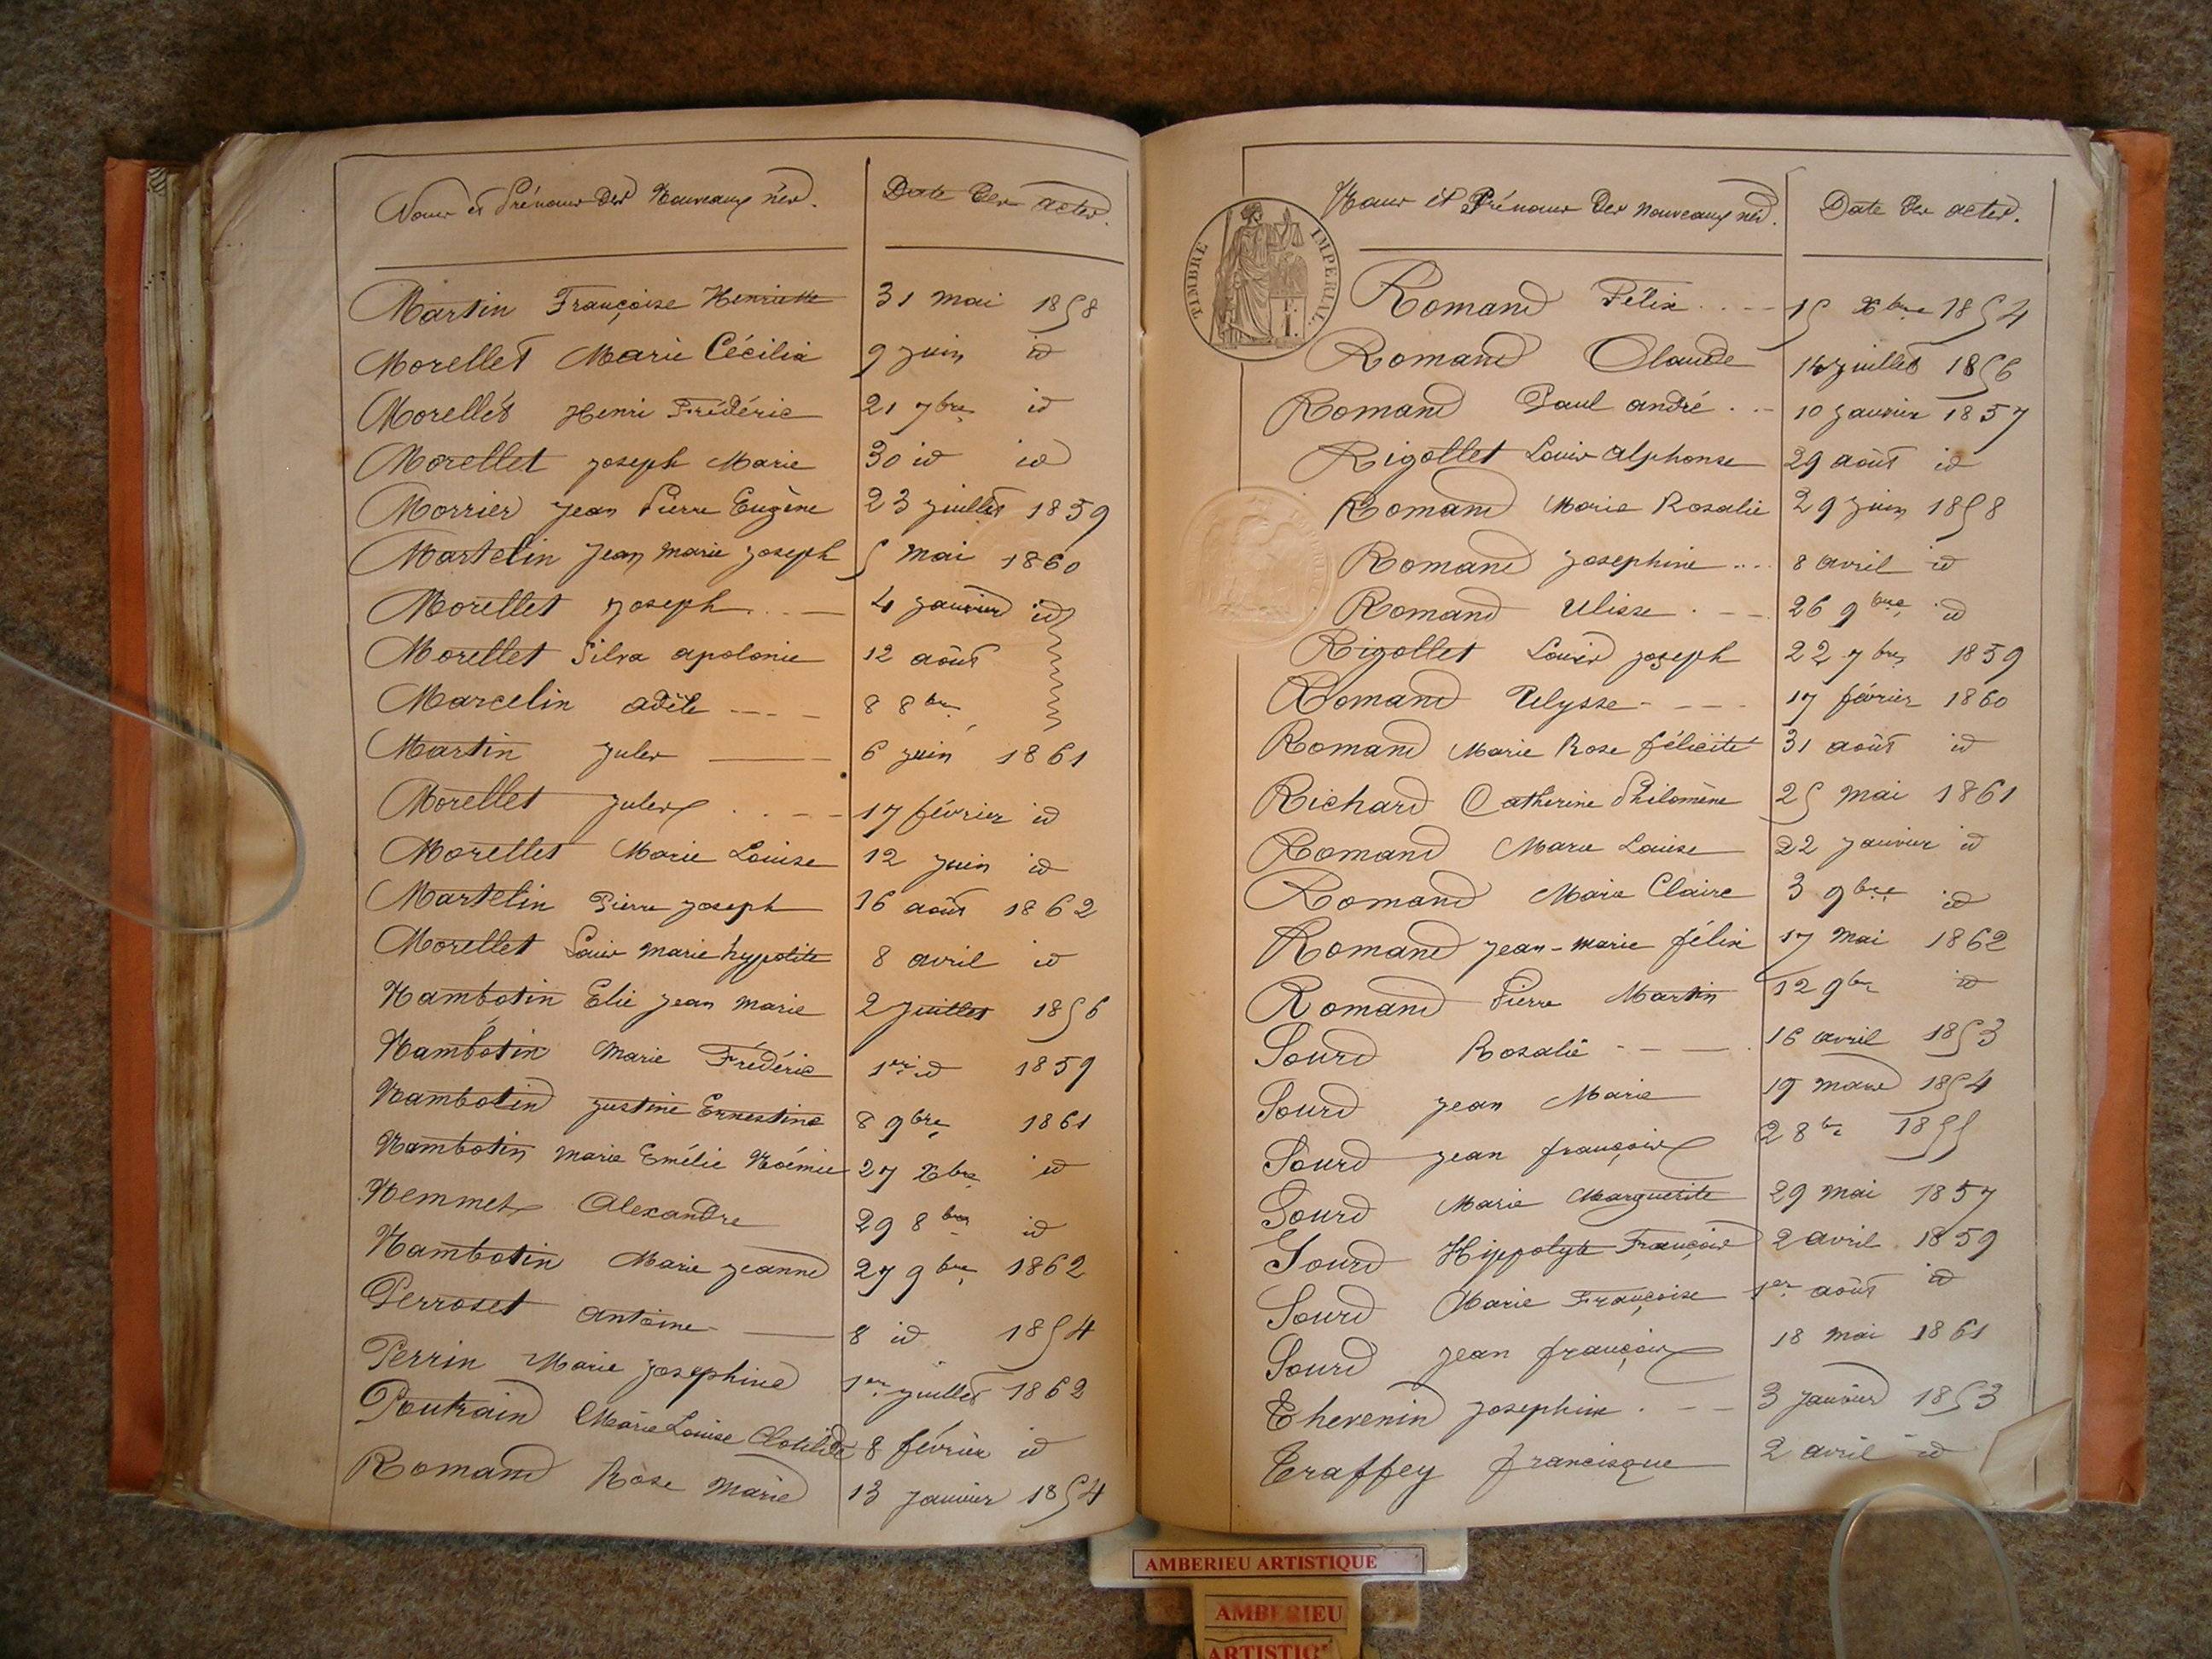 Noms et Prénoms des Nouveaux nés. Date des actes.
Martin Françoise Henriette 31 mai 1858
Morellet Marie Cécilia 9 juin id
Morellet Henri Frédéric 21 7bre id
Morellet joseph Marie 30 id id
Morrier jean Pierre Eugène 23 juillet 1859
Martelin jean marie joseph 5 mai 1860
Morellet joseph 4 janvier id
Morellet Silva apolonie 12 août
Marcelin adèle 8 8bre
Martin jules 6 juin 1861
Morellet jules 17 février id
Morellet Marie Louise 12 juin id
Martelin Pierre joseph 16 août 1862
Morellet Louis marie hypolite 8 avril id
Nambotin Elie jean marie 2 juillet 1856
Nambotin Marie Frédéric 1er id 1859
Nambotin justine Ernestine 8 9bre 1861
Nambotin marie Emélie Noémie 27 Xbre id
Nemmet Alexandre 29 8bre id
Nambotin Marie jeanne 27 9bre 1862
Perroset antoine 8 id 1854
Perrin Marie josephine 1er juillet 1862
Poutrain Marie Louise Clotilde 8 février id
Romand Rose marie 13 janvier 1854
Noms et Prénoms des nouveaux nés. Date des actes.
TIMBRE IMPERIAL
Romand Félix 15 Xbre 1854
Romand Claude 14 juillet 1856
Romand Paul andré 10 janvier 1857
Rigollet Louis alphonse 29 août id
Romand Marie Rosalie 29 juin 1858
Romand josephine 8 avril id
Romand Ulisse 26 9bre id
Rigollet Louis joseph 22 7bre 1859
Romand Ulysse 17 février 1860
Romand Marie Rose félicité 31 août id
Richard Catherine Philomène 25 mai 1861
Romand Marie Louise 22 janvier id
Romand Marie Claire 3 9bre id
Romand jean-marie félix 17 mai 1862
Romand Pierre Martin 12 9bre id
Sourd Rosalie 16 avril 1853
Sourd jean Marie 19 mars 1854
Sourd jean françois 2 8bre 1855
Sourd Marie Marguerite 29 mai 1857
Sourd Hippolyte François 2 avril 1859
Sourd Marie Françoise 1er août id
Sourd jean françois 18 mai 1861
Thevenin josephine 3 janvier 1853
Traffey francisque 2 avril id
AMBERIEU ARTISTIQUE
AMBERIEU
ARTISTIQ